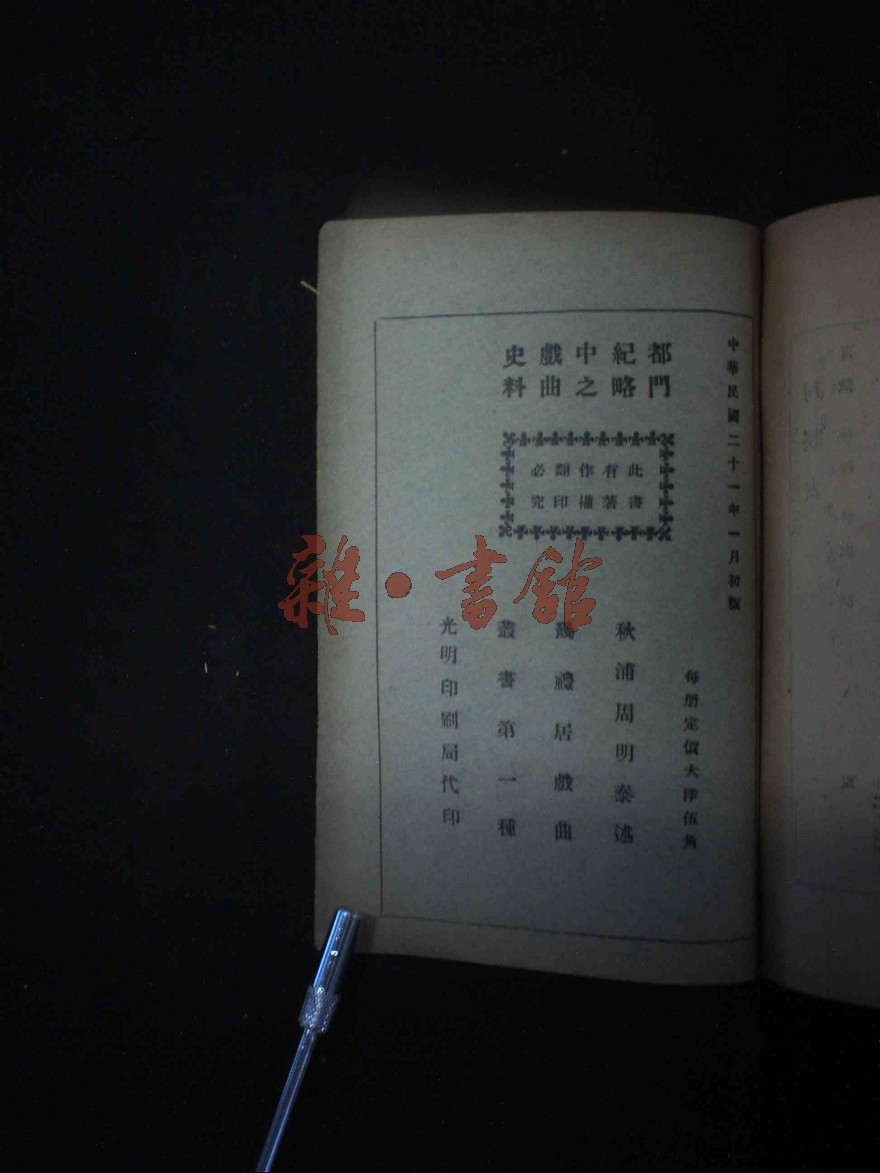 中華民國二十一年一月初版
每册定價大洋伍角
都門
紀略
中之
戲曲
史料
此書
有著
作權
翻印
必究
秋浦周明泰述
禮居戲曲
叢書第一種
光明印刷局代印
雜·書館